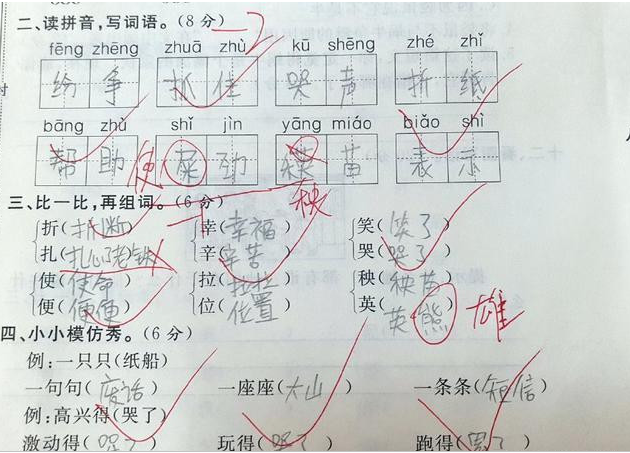 二、读拼音，写词语。（8分） -2
fēng zhēng zhuā zhù kū shēng zhé zhǐ
纷争 抓住 哭声 折纸
bāng zhù shǐ jìn yāng miáo biǎo shì
帮助 屎劲 苗 表示
使
秧
三、比一比，再组词。（6分） -1
折（折断） 幸（幸福） 笑（笑了）
扎（扎心了老铁） 辛（辛苦） 哭（哭了）
使（使命） 拉（拉拉） 秧（秧苗）
便（便便） 位（位置） 英（英熊） 雄
四、小小模仿秀。（6分）
例：一只只（纸船）
一句句（废话） 一座座（大山） 一条条（短信）
例：高兴得（哭了）
激动得（哭了） 玩得（哭了） 跑得（累了）